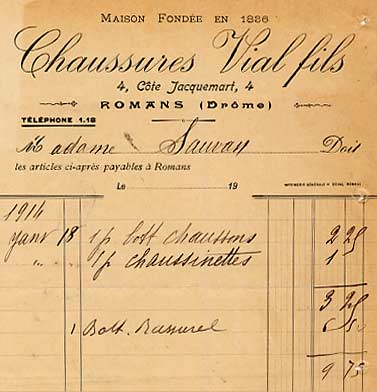 MAISON FONDÉE EN 1886
Chaussures Vial fils
4, Côte Jacquemart, 4
ROMANS (Drôme)
TÉLÉPHONE 1.18
Madame Sauvan Doit
les articles ci-après payables à Romans
Le 19
1914
Janv 18 1 p bott chaussons 2 25
" " 1 p chaussinettes 1
3 25
1 Bott. 6 50
9 75